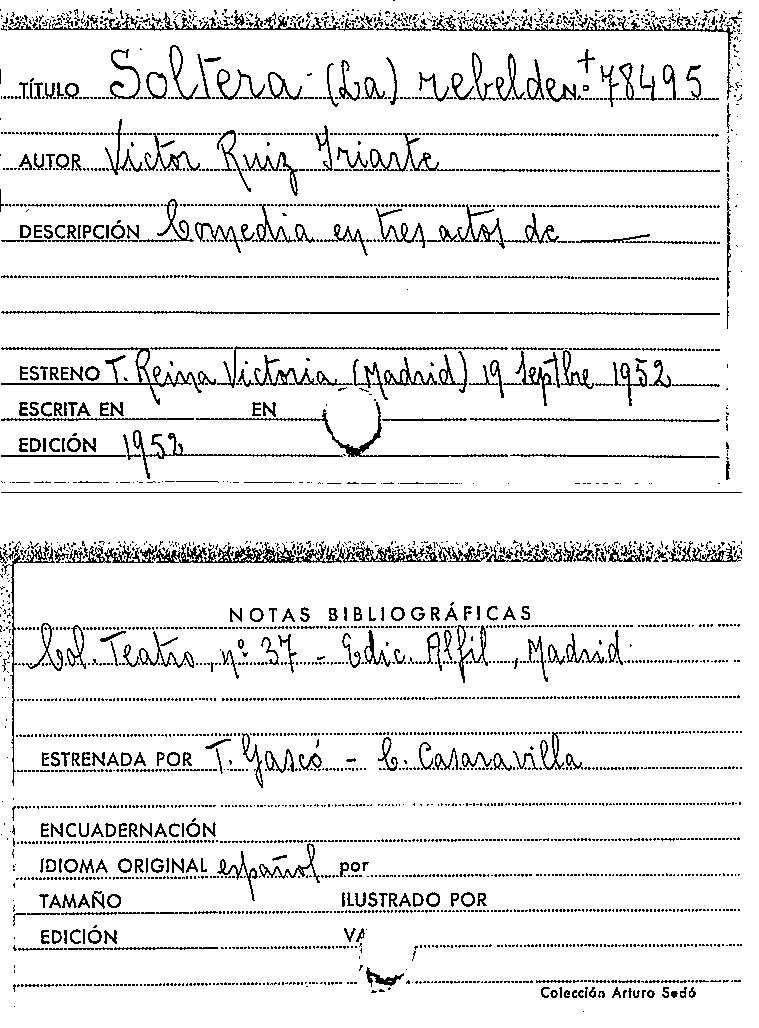 TÍTULO Soltera (La) rebelde N.º + 78495
AUTOR Victor Ruiz Iriarte
DESCRIPCIÓN Comedia en tres actos de ——
ESTRENO T. Reina Victoria (Madrid) 19 Septbre 1952
ESCRITA EN EN
EDICIÓN 1952
NOTAS BIBLIOGRÁFICAS
Col. Teatro, nº 37 - Edic. Alfil, Madrid.
ESTRENADA POR T. Gascó - C. Casaravilla
ENCUADERNACIÓN
IDIOMA ORIGINAL español por
TAMAÑO ILUSTRADO POR
EDICIÓN
Colección Arturo Sedó